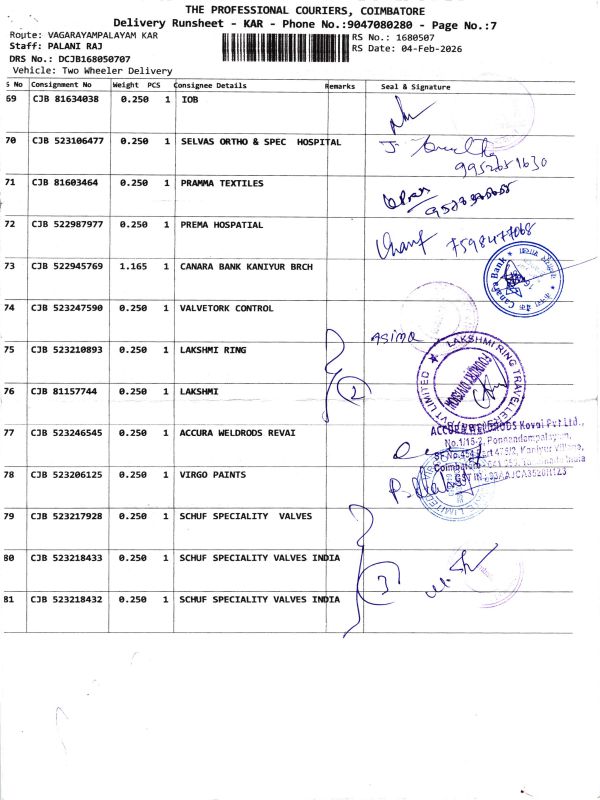 THE PROFESSIONAL COURIERS, COIMBATORE
Delivery Runsheet - KAR - Phone No.:9047080280 - Page No.:7
Route: VAGARAYAMPALAYAM KAR
RS No.: 1680507
Staff: PALANI RAJ
RS Date: 04-Feb-2026
DRS No.: DCJB168050707
Vehicle: Two Wheeler Delivery
S No Consignment No Weight PCS Consignee Details Remarks Seal & Signature
69 CJB 81634038 0.250 1 IOB
70 CJB 523106477 0.250 1 SELVAS ORTHO & SPEC HOSPITAL
71 CJB 81603464 0.250 1 PRAMMA TEXTILES
72 CJB 522987977 0.250 1 PREMA HOSPATIAL 7598477068
73 CJB 522945769 1.165 1 CANARA BANK KANIYUR BRCH
Canara Bank
74 CJB 523247590 0.250 1 VALVETORK CONTROL
asima
75 CJB 523210893 0.250 1 LAKSHMI RING
LAKSHMI RING TRAVELLERS
FOUNDRY DIVISION
PVT LIMITED
76 CJB 81157744 0.250 1 LAKSHMI
2
77 CJB 523246545 0.250 1 ACCURA WELDRODS REVAI
ACCURA WELDRODS Kovai Pvt Ltd.,
No.1/15-2, Ponnandampalayam,
78 CJB 523206125 0.250 1 VIRGO PAINTS
79 CJB 523217928 0.250 1 SCHUF SPECIALITY VALVES
80 CJB 523218433 0.250 1 SCHUF SPECIALITY VALVES INDIA
3
81 CJB 523218432 0.250 1 SCHUF SPECIALITY VALVES INDIA